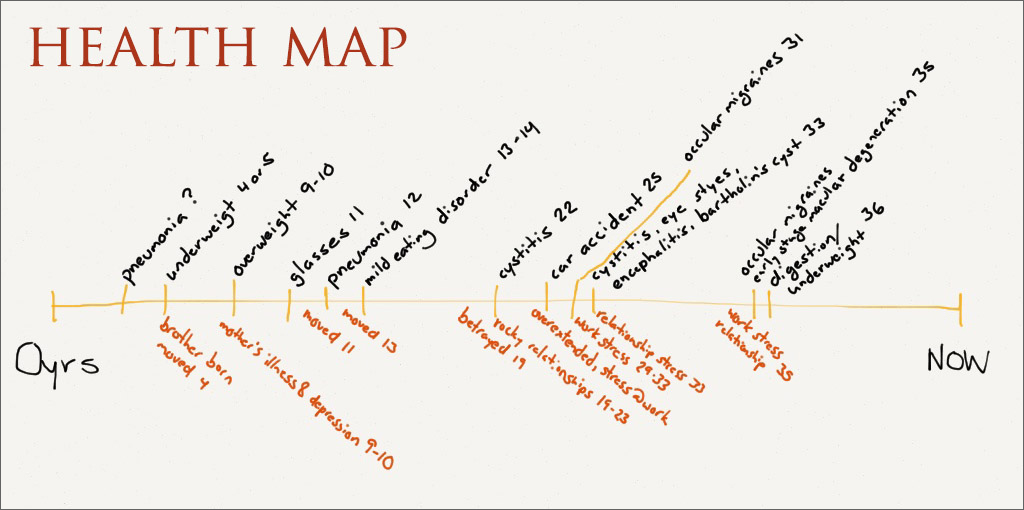 HEALTH MAP
pneumonia ?
underweigt 4 or 5
overweight 9-10
glasses 11
pneumonia 12
mild eating disorder 13-14
cystitis 22
car accident 25
occular migraines 31
cystitis, eye styes,
encephalitis, bartholin's cyst 33
occular migraines
early stage macular degeneration 35
digestion/
underweight 36
Oyrs
NOW
brother born
moved 4
mother's illness & depression 9-10
moved 11
moved 13
betrayed 19
rocky relationships 19-23
overextended, stress@work
work stress 29-33
relationship stress 33
work stress
relationship 35